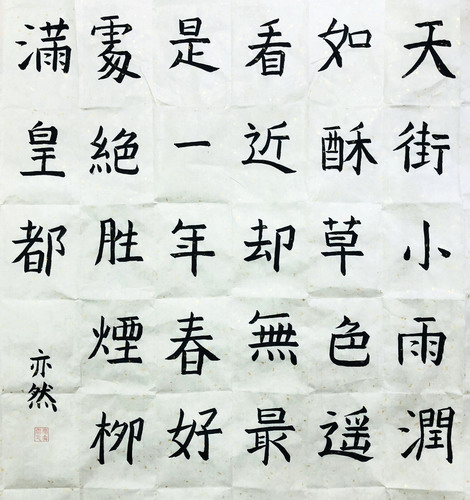 天街小雨潤
如酥草色遥
看近却無最
是一年春好
處絕胜煙柳
滿皇都
亦然